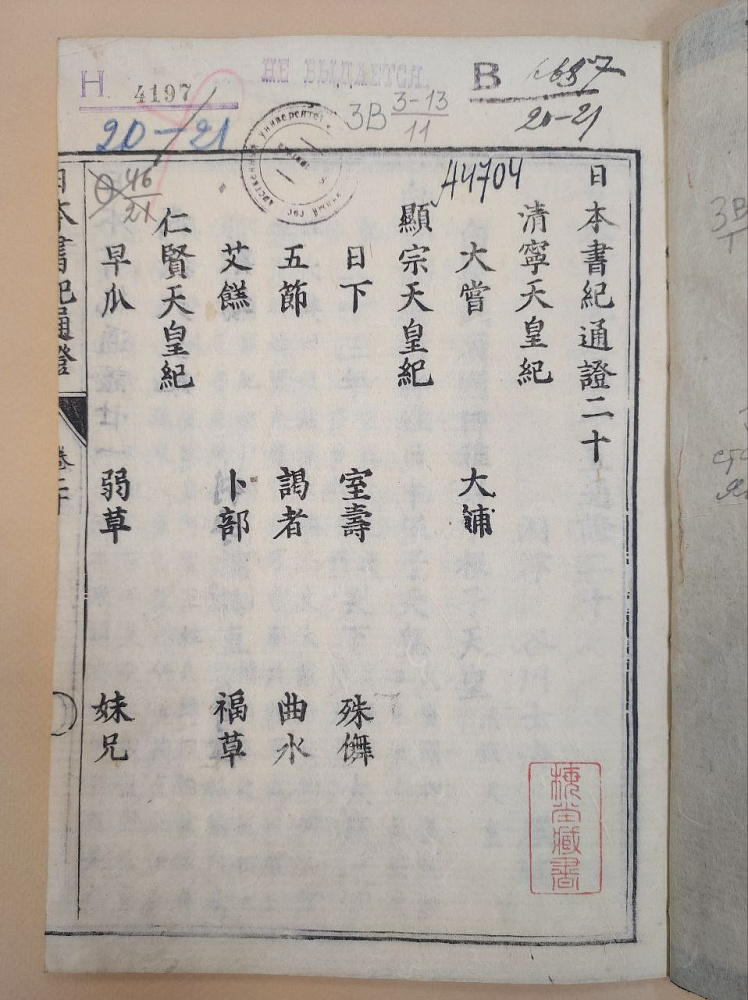 Н 4197
НЕ ВЫДАЕТСЯ.
В
20-21
20-21
3В 3-13
11
46
21
АЧ704
日本書紀通證二十
清寧天皇紀
大嘗 大酺
顯宗天皇紀
日下 室壽 殊儛
五節 謁者 曲水
艾餻 卜部 福草
仁賢天皇紀
早瓜 弱草 妹兄
日本書紀通證
卷二十
藏書
3В